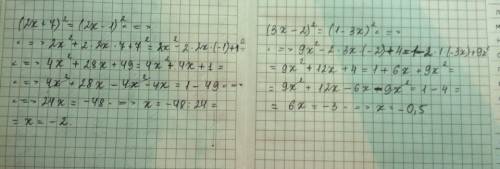 (2x + 7)² = (2x - 1)² ∙ = >
∙ = > 2x² + 2 ∙ 2x ∙ 7 + 7² = 2x² - 2 ∙ 2x ∙ (-1) + 1²
∙ = > 4x² + 28x + 49 = 4x² + 4x + 1 =
∙ = > 4x² + 28x - 4x² - 4x = 1 - 49 ∙ = >
∙ = > 24x = -48 ∙ = > x = -48 : 24 =
= x = -2.
(3x - 2)² = (1 - 3x)² ∙ = >
∙ = > 9x² - 2 ∙ 3x ∙ (-2) + 4 = 1 - 2 ∙ 1 ∙ (-3x) + 9x²
= 9x² + 12x + 4 = 1 + 6x + 9x² =
= 9x² + 12x - 6x - 9x² = 1 - 4 =
= 6x = -3 ∙ = > x = -0,5